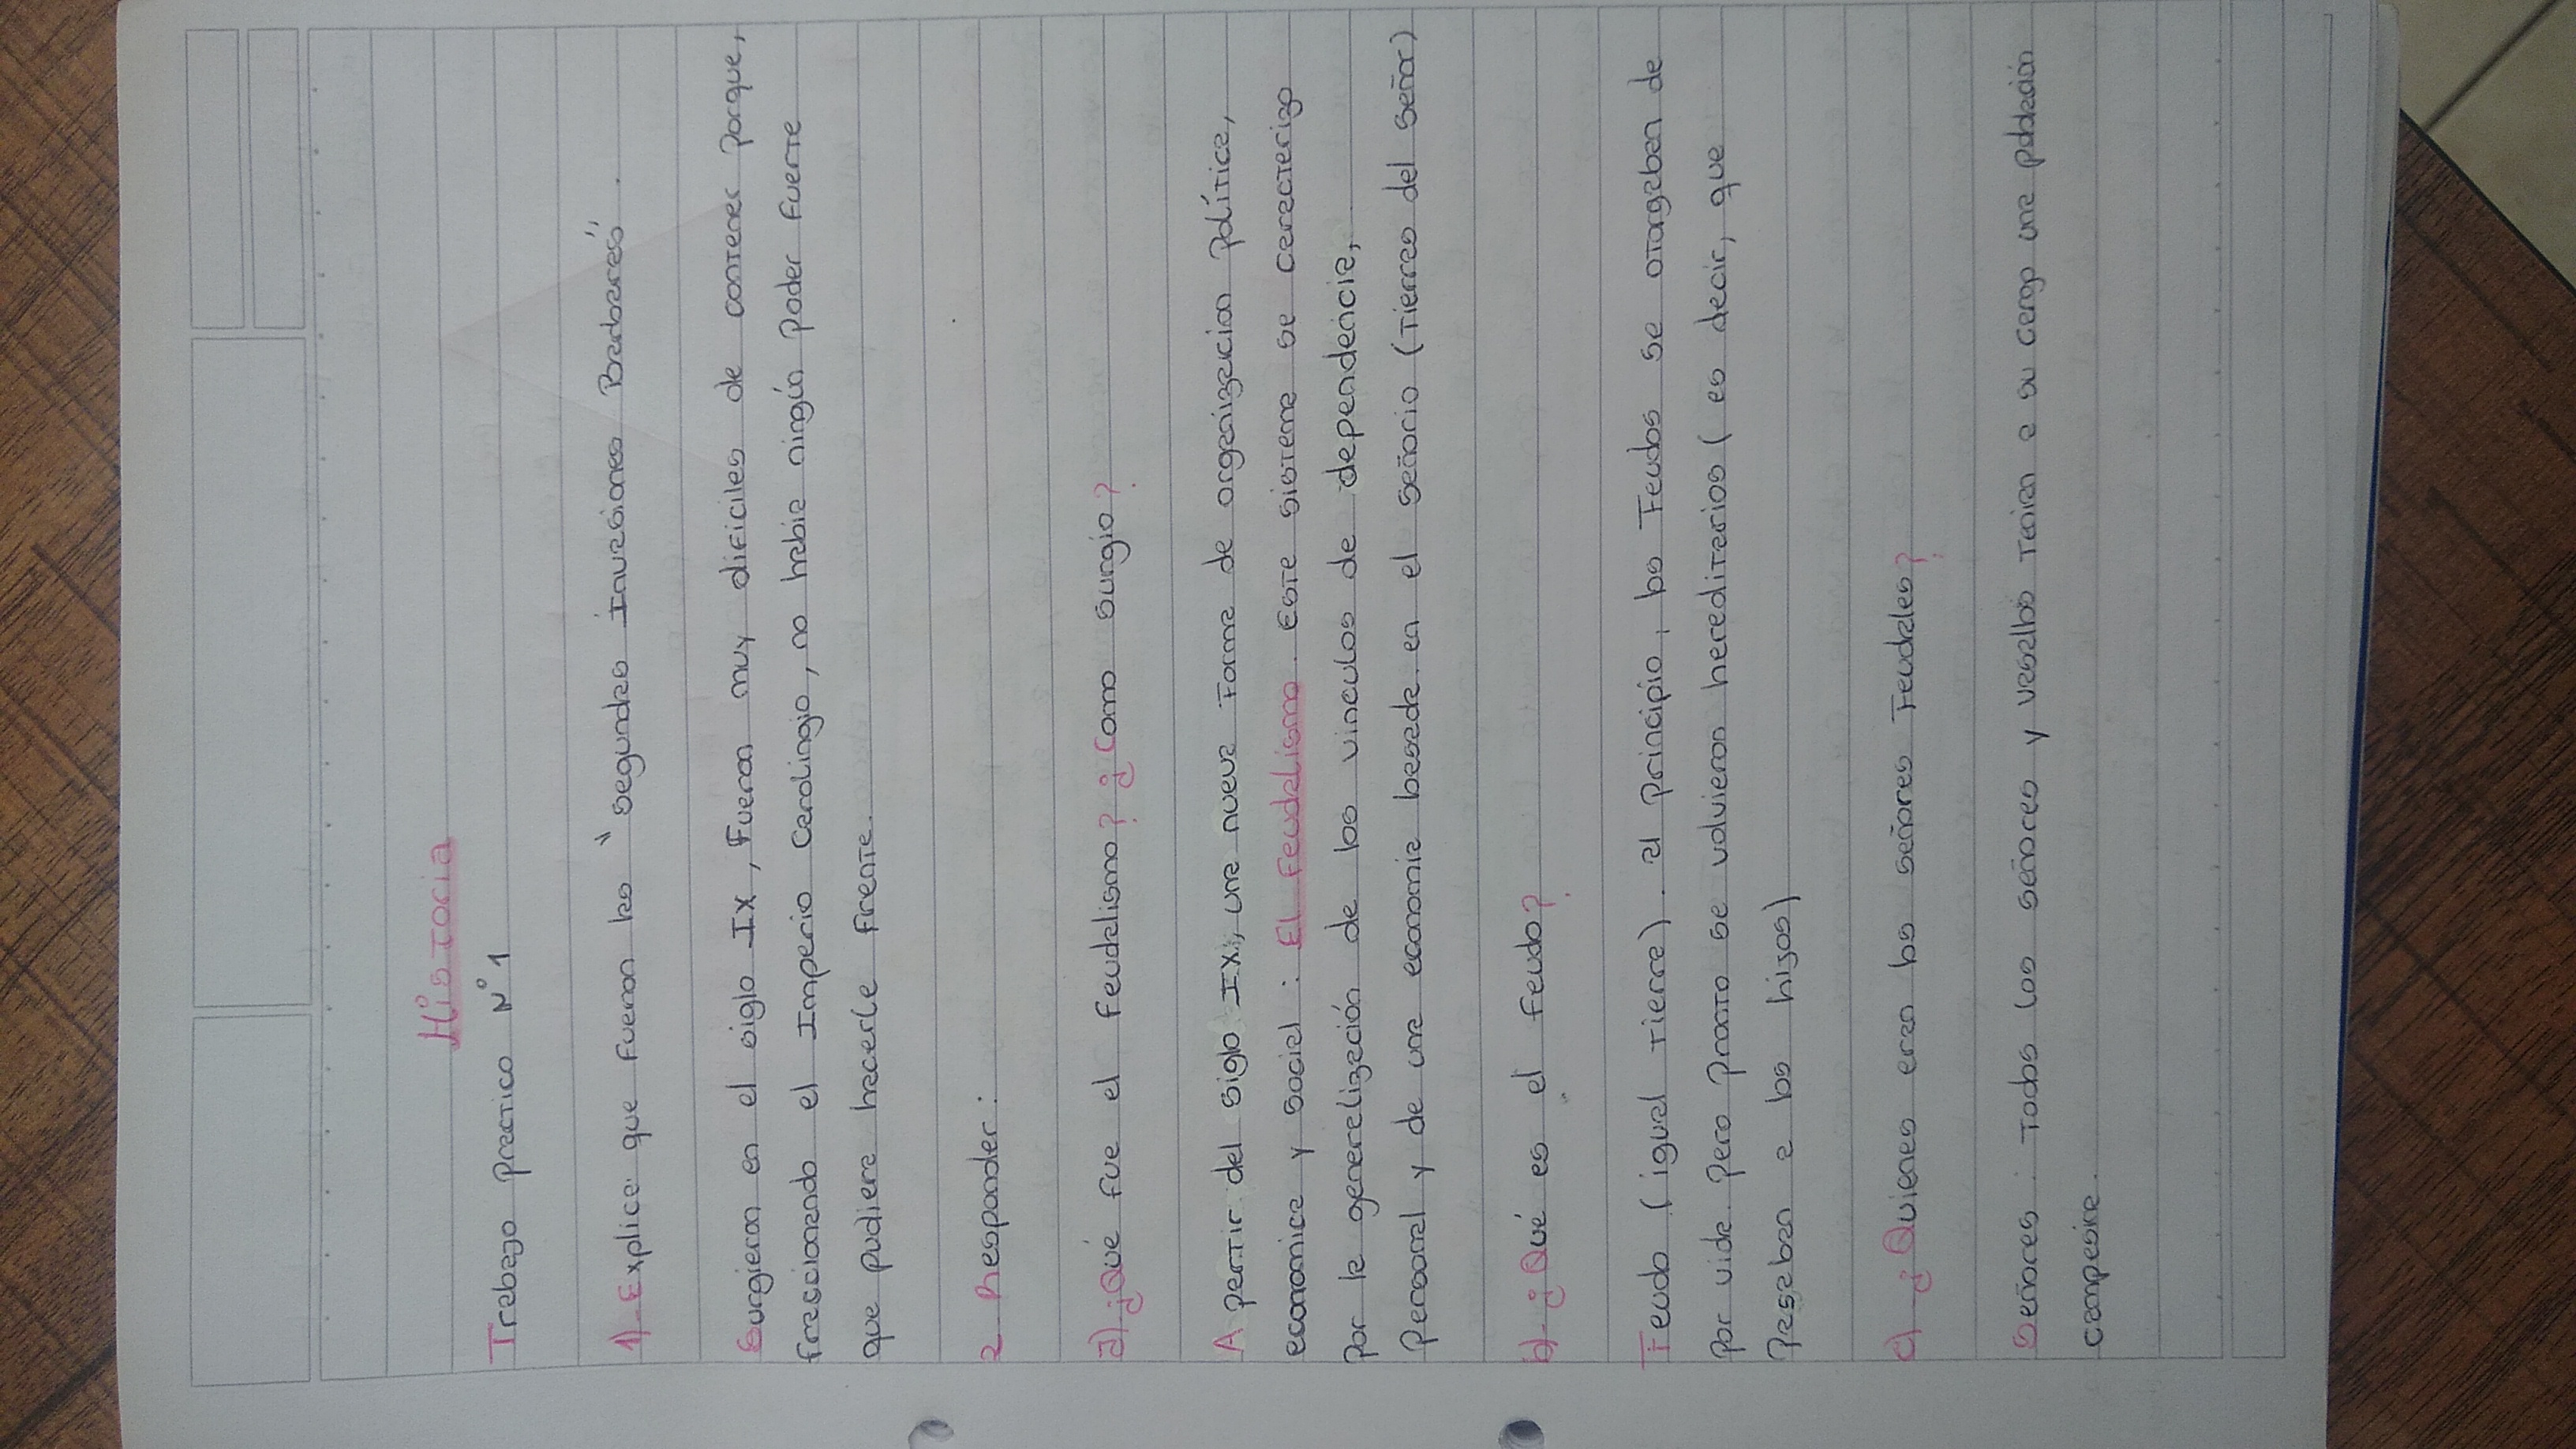 Historia
Trabajo practico N°1
1)-Explica que fueron las "segundas invasiones Barbaras".
Surgieron en el siglo IX, Fueron muy dificiles de contener porque,
fraccionando el Imperio Carolingio, no habia ningún poder fuerte
que pudiera hacerle frente.
2 Responder:
a) ¿Qué fue el feudalismo? ¿Como surgio?
A partir del siglo IX, una nueva forma de organizacion política,
economica y social: El feudalismo. Este sistema se caracterizo
por la generalización de los vinculos de dependencia,
personal y de una economia basada en el señorio (tierras del señor)
b)- ¿Qué es el feudo?
Feudo (igual tierra). al principio, los feudos se otorgaban de
por vida. pero pronto se volvieron hereditarios (es decir, que
pasaban a los hijos)
c)- ¿Quienes eran los señores feudales?
Señores: Todos los señores y vasallos tenian a su cargo una población
campesina.